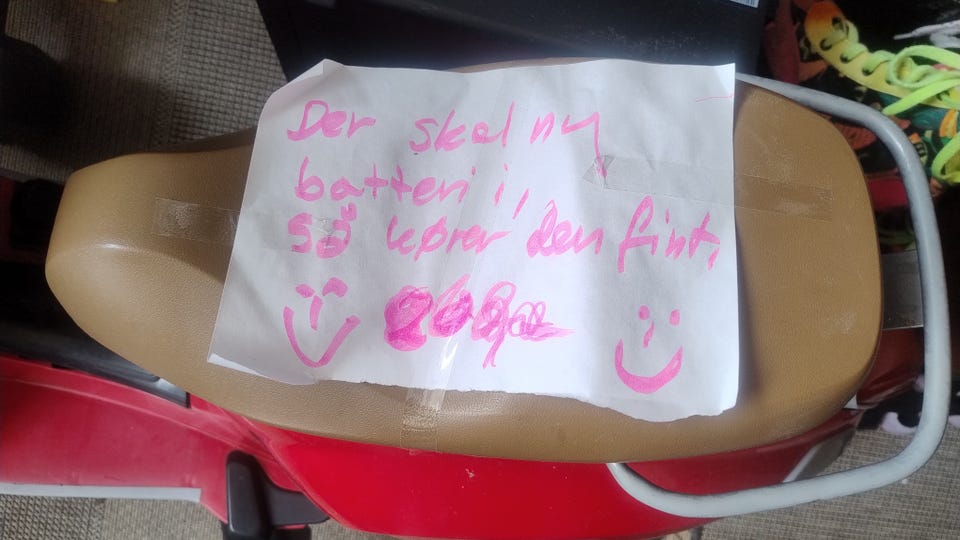 Der skal ny
batteri i,
så kører den fint,